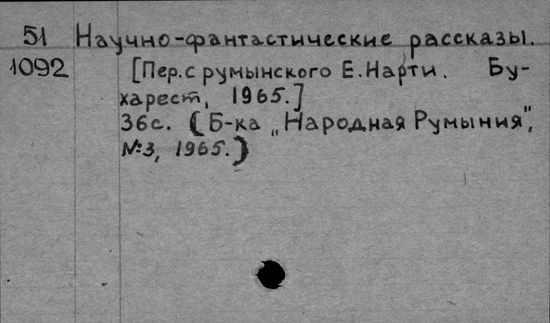 51 Научно-фантастические рассказы.
1092 [Пер. с румынского Е. Нарти. Бу-
харест, 1965.]
36с. (Б-ка „Народная Румыния",
№3, 1965.)